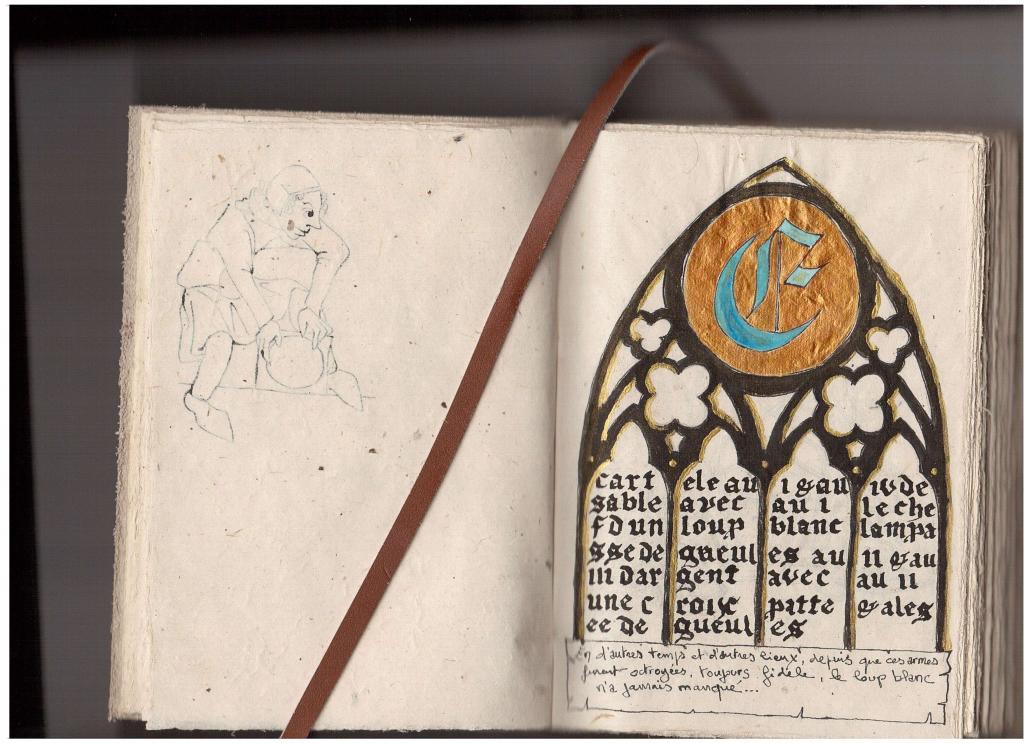 E
cart ele au i & au iv de
sable avec au i le che
f d un loup blanc lampa
sse de gueul es au ii & au
iii dar gent avec au ii
une c roix patte & ales
ee de gueul es
En d'autres temps et d'autres lieux, depuis que ces armes
furent octroyées, toujours fidèle, le loup blanc
n'a jamais manqué...